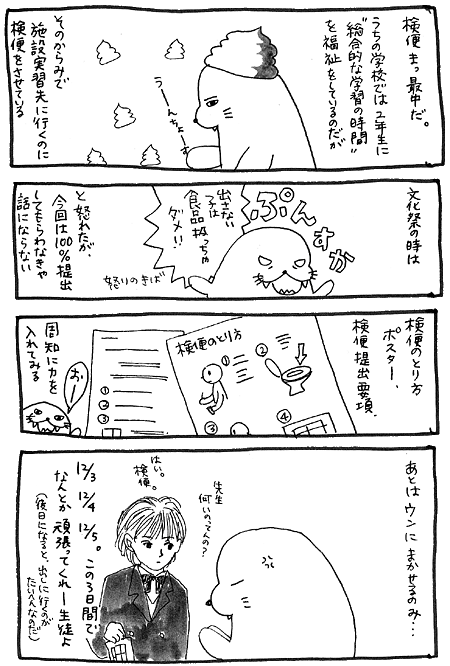 検便まっ最中だ。
うちの学校では2年生に
"総合的な学習の時間"
を福祉をしているのだが
うーんちょす
そのからみで
施設実習先に行くのに
検便をさせている
文化祭の時は
ぷんすか
出さない
子は
食品扱っちゃ
ダメ!!
怒りのきば
と怒れたが、
今回は100%提出
してもらわなきゃ
話にならない
検便のとり方
ポスター、
検便提出要項、
検便のとり方
①
②
③
④
①
②
おー
周知に力を
入れてみる
あとはウンにまかせるのみ…
うっ
先生
何いってんの?
はい。
検便。
12/3 12/4 12/5。この3日間で
なんとか頑張ってくれー生徒よ
(後日になると、出しに行くのが
たいへんなのだ)